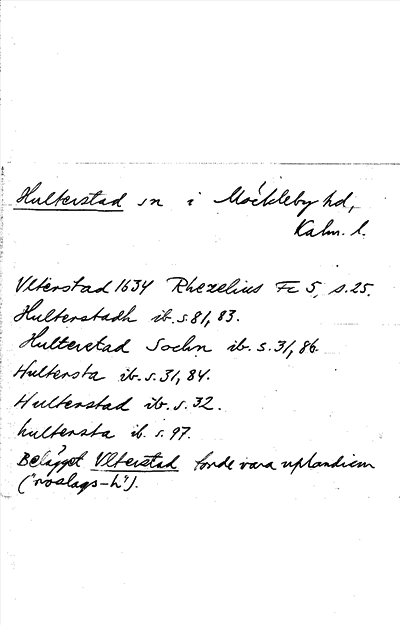 Hulterstad sn i Möckleby hd,
Kalm. l.
Vlterstad 1634 Rhezelius Fc 5, s.25.
Hulterstadh ib. s.81, 83.
Hulterstad Sochn ib. s.31, 86.
Hultersta ib. s.31, 84.
Hulterstad ib. s.32.
hultersta ib. s.97.
Belägget Vlterstad torde vara uplandism
("roslags-h").